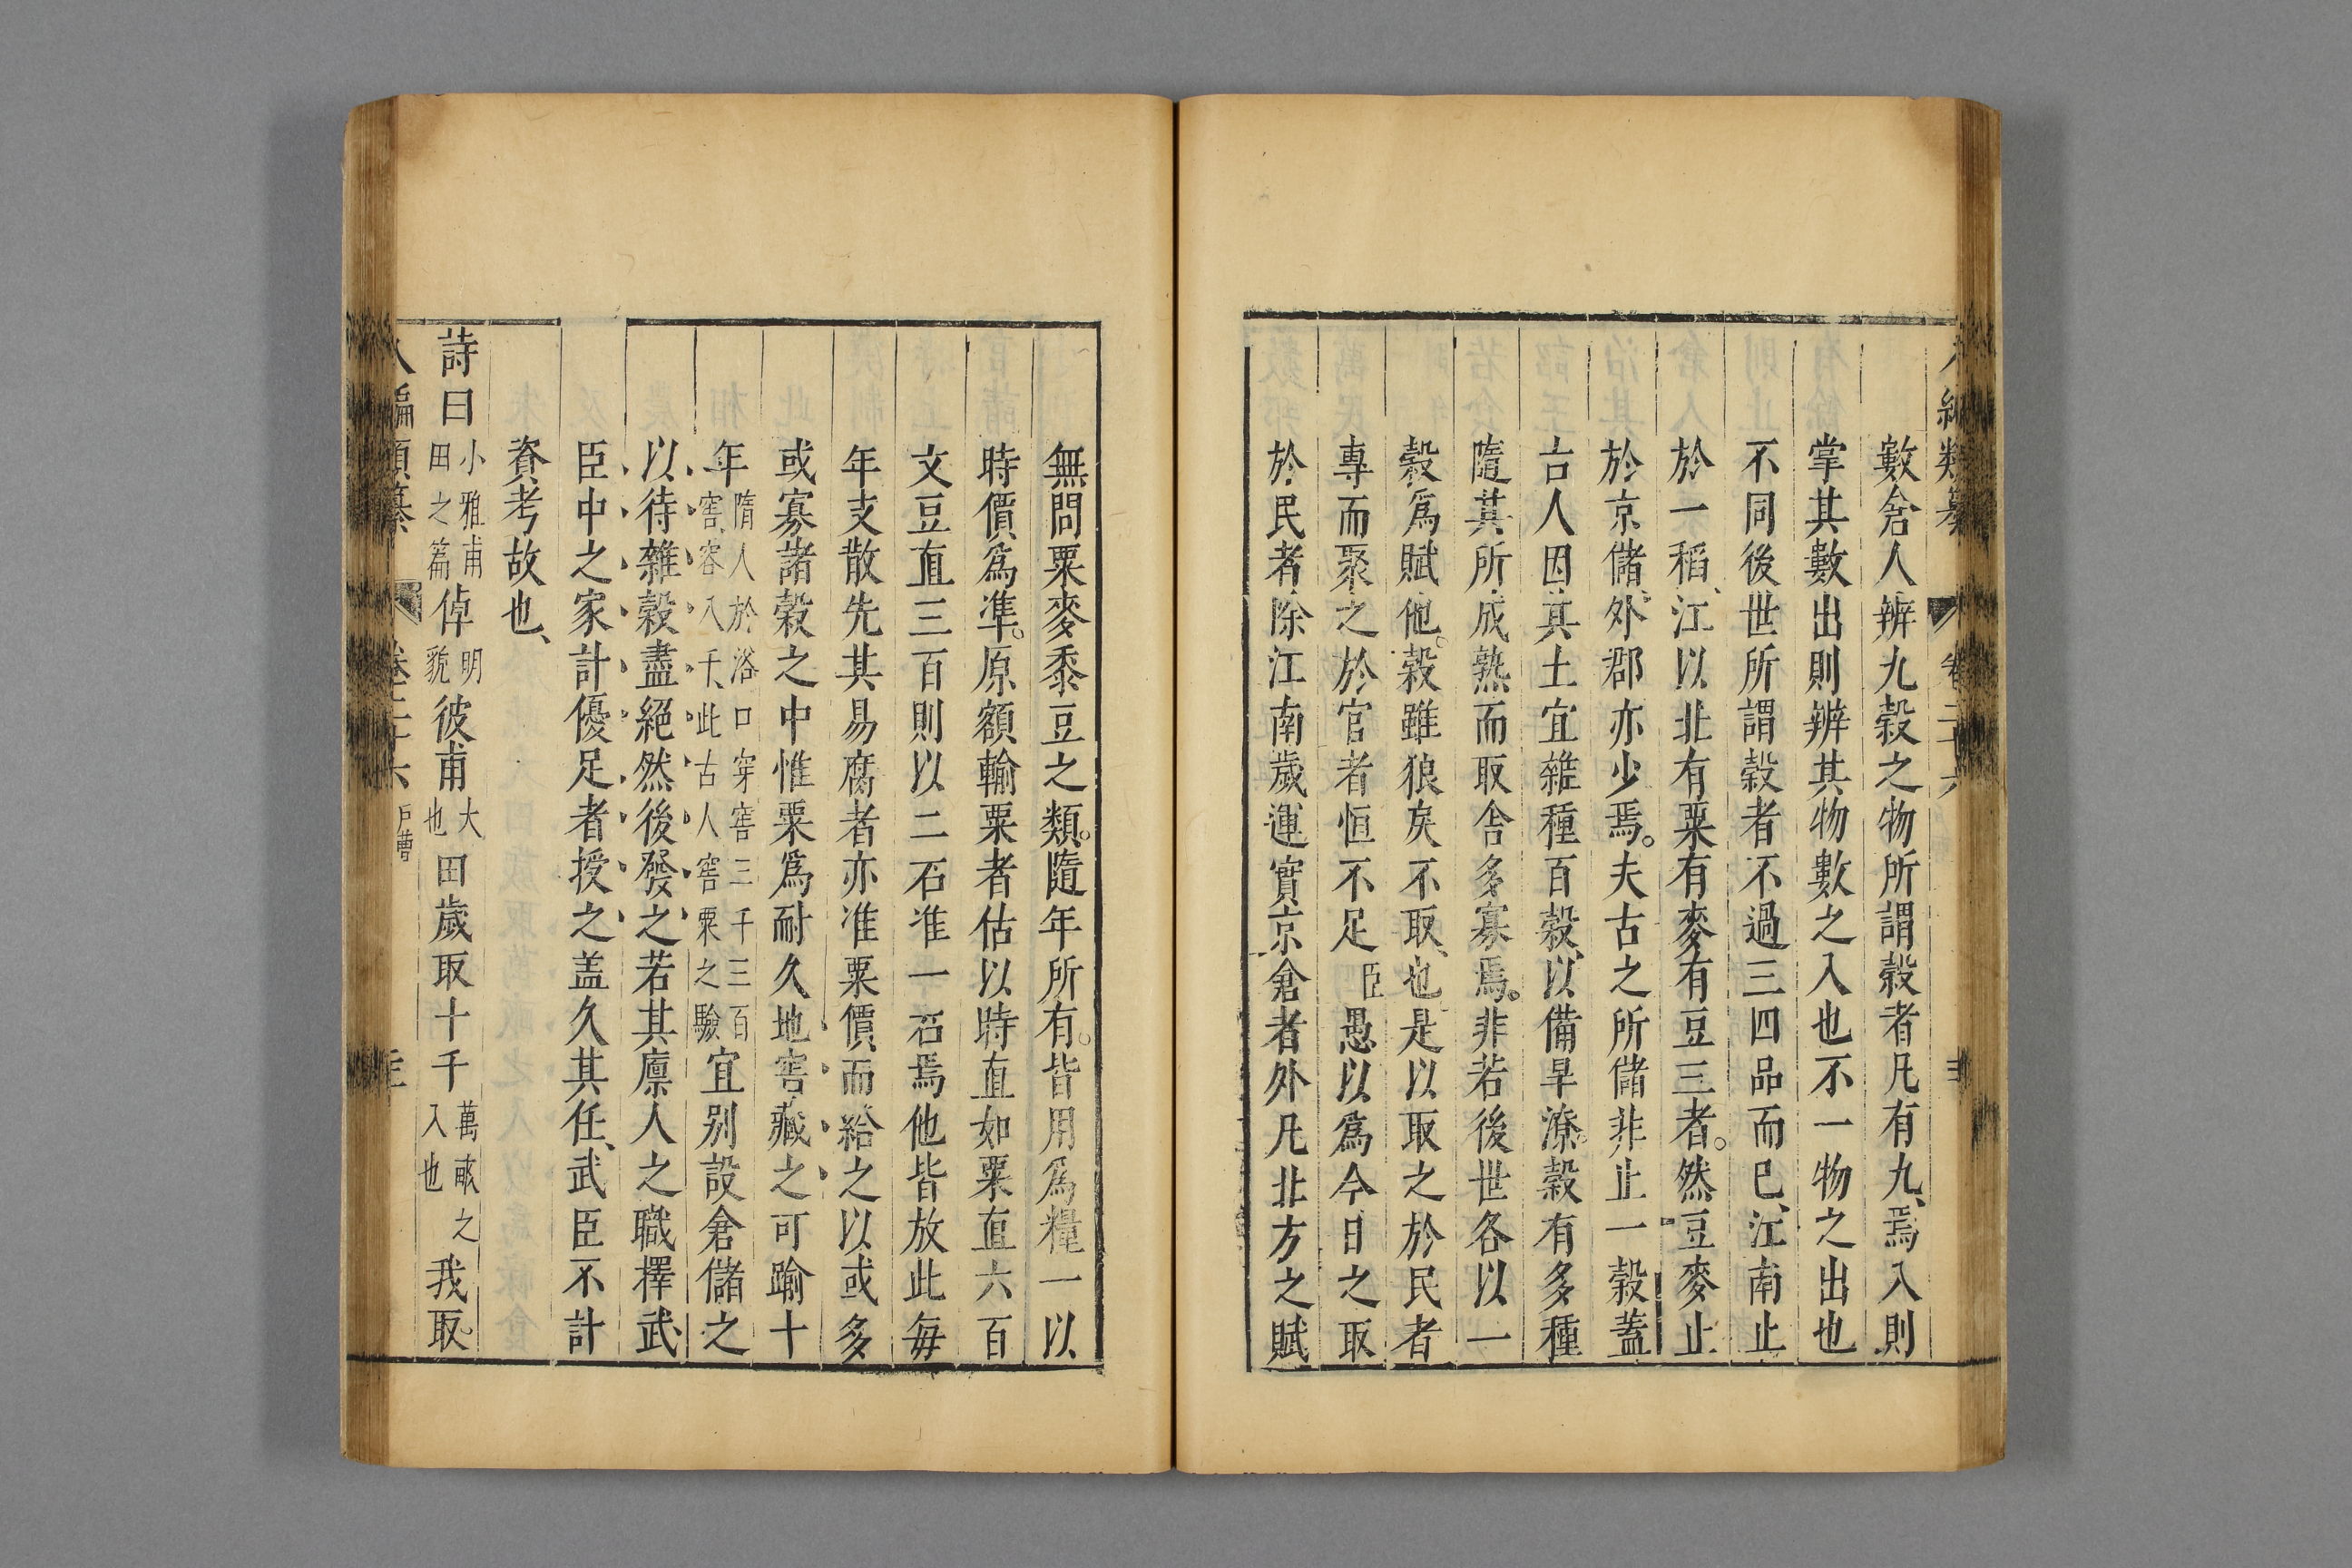 八編類纂 卷二十六
數倉人辨九穀之物所謂穀者凡有九焉入則
掌其數出則辨其物數之入也不一物之出也
不同後世所謂穀者不過三四品而已江南止
於一稻江以北有粟有麥有豆三者然豆麥止
於京儲外郡亦少焉夫古之所儲非止一穀蓋
古人因其土宜雜種百穀以備旱潦穀有多種
隨其所成熟而取舍多寡焉非若後世各以一
穀爲賦他穀雖狼戾不取也是以取之於民者
專而聚之於官者恒不足臣愚以爲今日之取
於民者除江南歲運實京倉者外凡北方之賦
無問粟麥黍豆之類隨年所有皆用爲糧一以
時價爲準原額輸粟者估以時直如粟直六百
文豆直三百則以二石准一石焉他皆放此每
年支散先其易腐者亦准粟價而給之以或多
或寡諸穀之中惟粟爲耐久地窖藏之可踰十
年隋人於浴口穿窖三千三百窖容八千此古人窖粟之驗宜别設倉儲之
以待雜穀盡絕然後發之若其廪人之職擇武
臣中之家計優足者授之盖久其任武臣不計
資考故也
詩曰小雅甫田之篇倬明貌彼甫大也田歲取十千萬畝之入也我取
八編類纂 卷二十六 戶曹